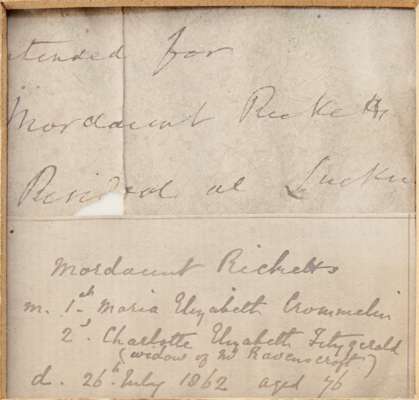 ntended for
Mordaunt Ricketts
Resident at Luckn
Mordaunt Ricketts
m. 1st Maria Elizabeth Crommelin
2d Charlotte Elizabeth Fitzgerald
(widow of Mr Ravenscroft)
d. 26th July 1862 aged 76